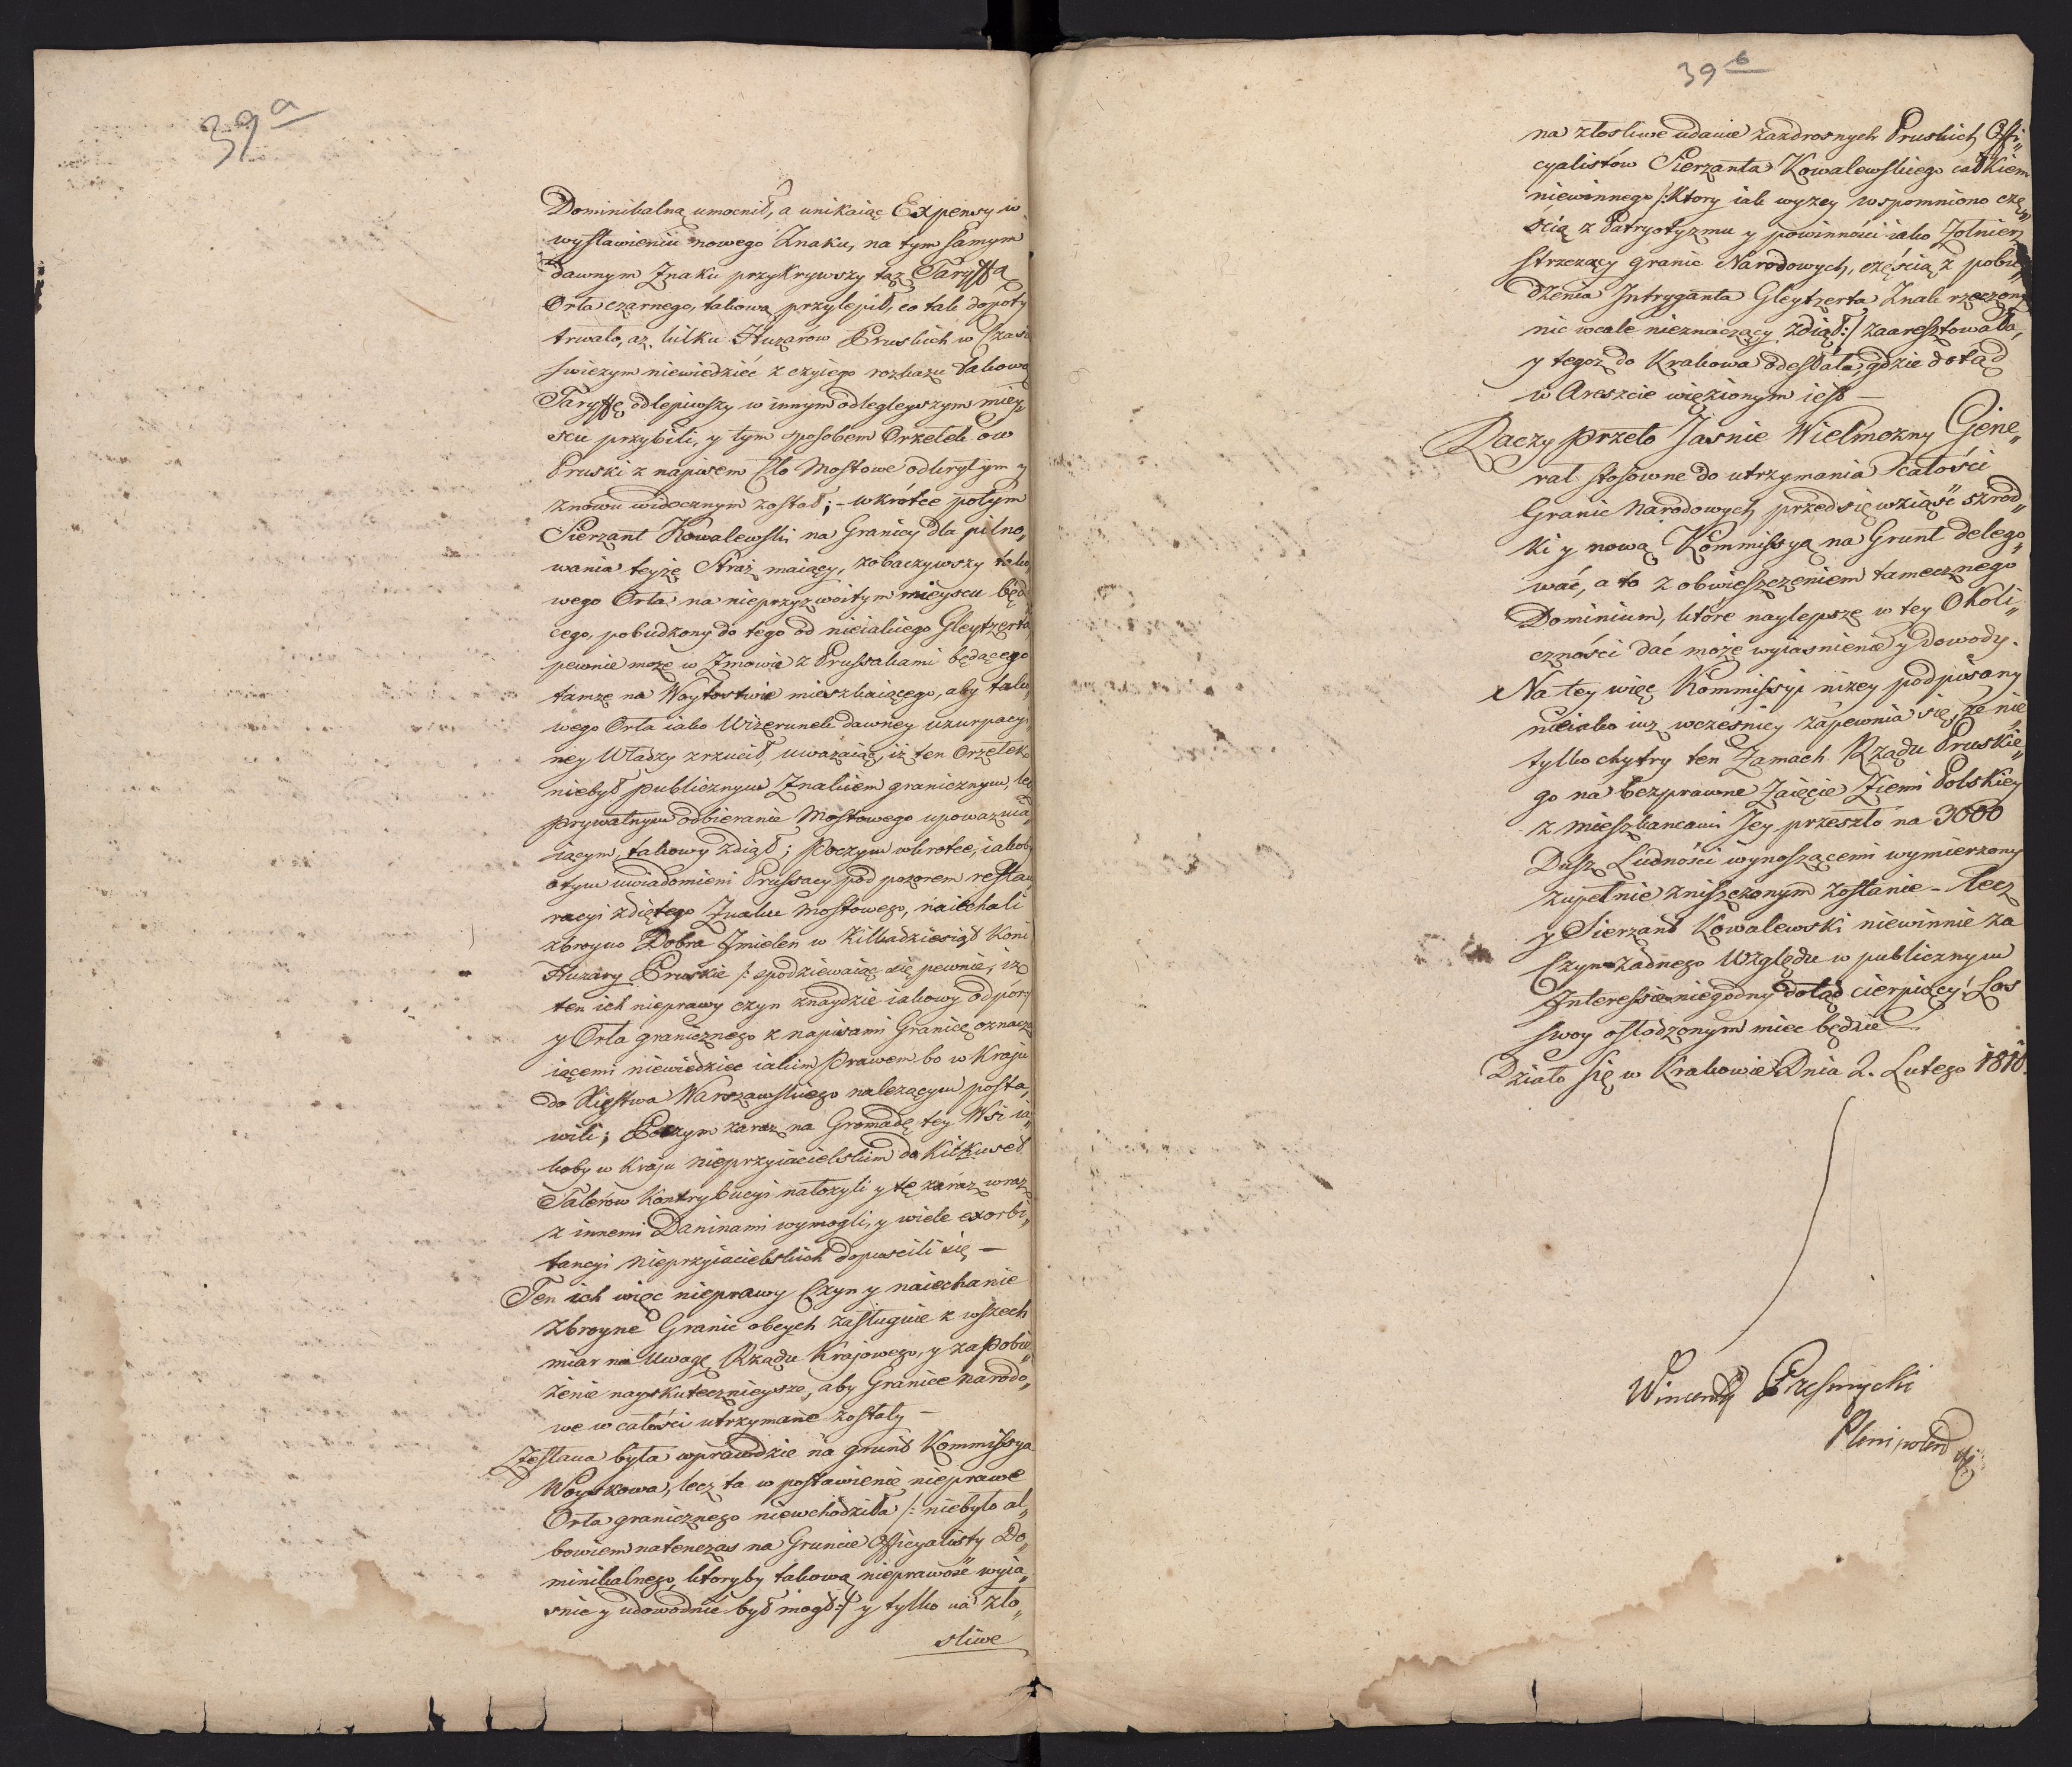 39a
Dominikalną umocnił, a unikaiąc Expensy w
wystawieniu nowego Znaku, na tym samym
dawnym Znaku przykrywszy taż Taryffą
Orła czarnego, takową przylepił, co tak dopoty
trwało, aż kilku Huzarów Pruskich w Czasie
swieżym niewiedzieć z czyiego rozkazu takową
Taryffę odlepiwszy w innym odlegleyszym miey„
scu przybili, y tym sposobem Orzełek ów
Pruski z napisem Cło Mostowe odkrytym y
znowu widocznym został; – wkrótce potym
Sierzant Kowalewski na Granicy dla pilno„
wania teyże Straż maiący, zobaczywszy tako„
wego Orła na nieprzyzwoitym mieyscu będą„
cego, pobudzony do tego od nieiakiego Gleytzerta,
pewnie może w Zmowie z Prussakami będącego
tamże na Woytostwie mieszkaiącego, aby tako„
wego Orła iako Wizerunek dawney uzurpacy„
ney Władzy zrzucił, uważaiąc, iż ten Orzełek
niebył publicznym Znakiem granicznym, lecz
prywatnym odbieranie Mostowego upoważnia„
iącym, takowy zdiął; Poczym wkrotce, iakoby
otym uwiadomieni Prussacy pod pozorem restau„
racyi zdiętego Znaku Mostowego, naiechali
zbroyno Dobra Imielen w Kilkadziesiąt Koni
Huzary Pruskie /: spodziewaiąc się pewnie, iż
ten ich nieprawy czyn znaydzie iakowy odpór :/
y Orła granicznego z napisami Granicę oznacza„
iącemi niewiedziec iakim Prawem bo w Kraju
do Xięstwa Warszawskiego należącym posta„
wili; Poczym zaraz na Gromadę tey Wsi ia„
koby w Kraju nieprzyiacielskim do Kilkuset
Talerow Kontrybucyi nałożyli y tę zaraz wraz
z innemi Daninami wymogli, y wiele exorbi„
tancyi nieprzyiacielskich dopuscili się –
Ten ich więc nieprawy Czyn y naiechanie
zbroyne Granic obcych zasługuie z wszech
miar na Uwagę Rządu Krajowego, y zapobie„
żenie nayskutecznieysze, aby Granice narodo„
we w całości utrzymane zostały –
Zesłana była wprawdzie na grunt Kommissya
Woyskowa, lecz ta w postawienie nieprawe
Orła granicznego niewchodziła /: niebyło al„
bowiem natenczas na Gruncie Officyalisty Do„
minikalnego, ktoryby takową nieprawość wyia„
snic y udowodnić był mogł :/ y tylko na zło„
sliwe
39b
na złosliwe udanie zazdrosnych Pruskich Offi„
cyalistów Sierzanta Kowalewskiego całkiem
niewinnego /: Ktory iak wyzey wspomniono czę„
ścią z Patryotyzmu y powinności iako Zołnierz
strzezący granic Narodowych, częścią z pobu„
dzenia Intryganta Gleytzerta, Znak rzeczony
nic wcale nieznaczący zdiął :/ zaaresztowała,
y tegoz do Krakowa odesłała, gdzie dotąd
w Areszcie więzionym iest –
Raczy przeto Jasnie Wielmożny Gene„
rał stosowne do utrzymania całości
Granic Narodowych przedsięwziąść szrod„
ki y nową Kommissyą na Grunt delego„
wać, a to z obwieszczeniem tamecznego
Dominium, które naylepsze w tey Okoli„
czności dać może wyiasnienie y dowody.
Na tey więc Kommissyi niżey podpisany
nieiako iuz wcześniey zapewnia się, że nie
tylko chytry ten Zamach Rządu Pruskie„
go na bezprawne Zaięcie Ziemi Polskiey
z mieszkancami Jey przeszło na 3000
Dusz Ludności wynoszącemi wymierzony
zupełnie zniszczonym zostanie – lecz
y Sierzant Kowalewski niewinnie za
Czyn żadnego Względu w publicznym
Interessie niegodny dotąd cierpiący Los
swoy osłodzonym miec będzie –
Działo się w Krakowie Dnia 2. Lutego 1810.
Wincenty
Plenipotent